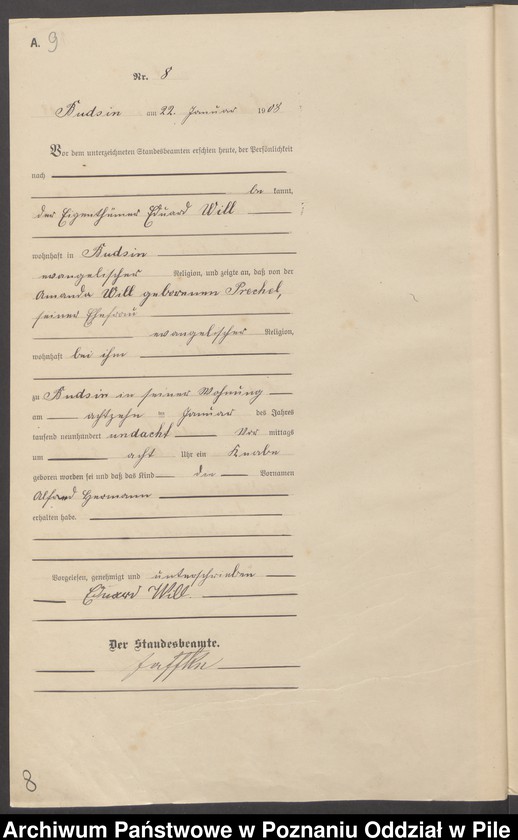 A. 9
Nr. 8
Kudsin am 22. Januar 1908
Vor dem unterzeichneten Standesbeamten erschien heute, der Persönlichkeit
nach
be kannt,
der Eigenthümer Eduard Will
wohnhaft in Kudsin
evangelischer Religion, und zeigte an, daß von der
Amanda Will geborenen Prechel,
seiner Ehefrau
evangelischer Religion,
wohnhaft bei ihm
zu Kudsin in seiner Wohnung
am achtzehn ten Januar des Jahres
tausend neunhundert undacht Vor mittags
um acht Uhr ein Knabe
geboren worden sei und daß das Kind den Vornamen
Alfred Hermann
erhalten habe.
Vorgelesen, genehmigt und unterschrieben
Eduard Will.
Der Standesbeamte.
8
Archiwum Państwowe w Poznaniu Oddział w Pile